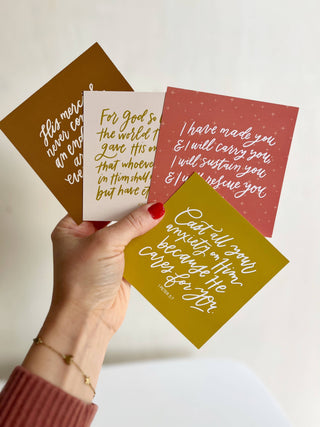 His mercies
never co
an en
a
eve
For God so l
the world T
gave His on
that whoeve
in Him shall
but have et
I have made you
& I will carry you,
I will sustain you
& I will rescue you
Cast all your
anxiety on Him
because He
cares for you.
1 Peter 5:7